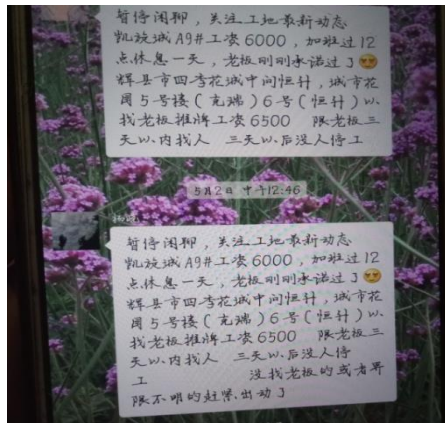 暂停闲聊，关注工地最新动态
凯旋城A9#工资6000，加班过12
点休息一天，老板刚刚承诺过了😍
辉县市四季花城中间恒升，城市花
园5号楼（克瑞）6号（恒升）以
找老板推牌工资6500 限老板三
天以内找人 三天以后没人停工
5月2日 中午12:46
暂停闲聊，关注工地最新动态
凯旋城A9#工资6000，加班过12
点休息一天，老板刚刚承诺过了😍
辉县市四季花城中间恒升，城市花
园5号楼（克瑞）6号（恒升）以
找老板推牌工资6500 限老板三
天以内找人 三天以后没人停
工 没找老板的或者界
限不明的赶紧出动了